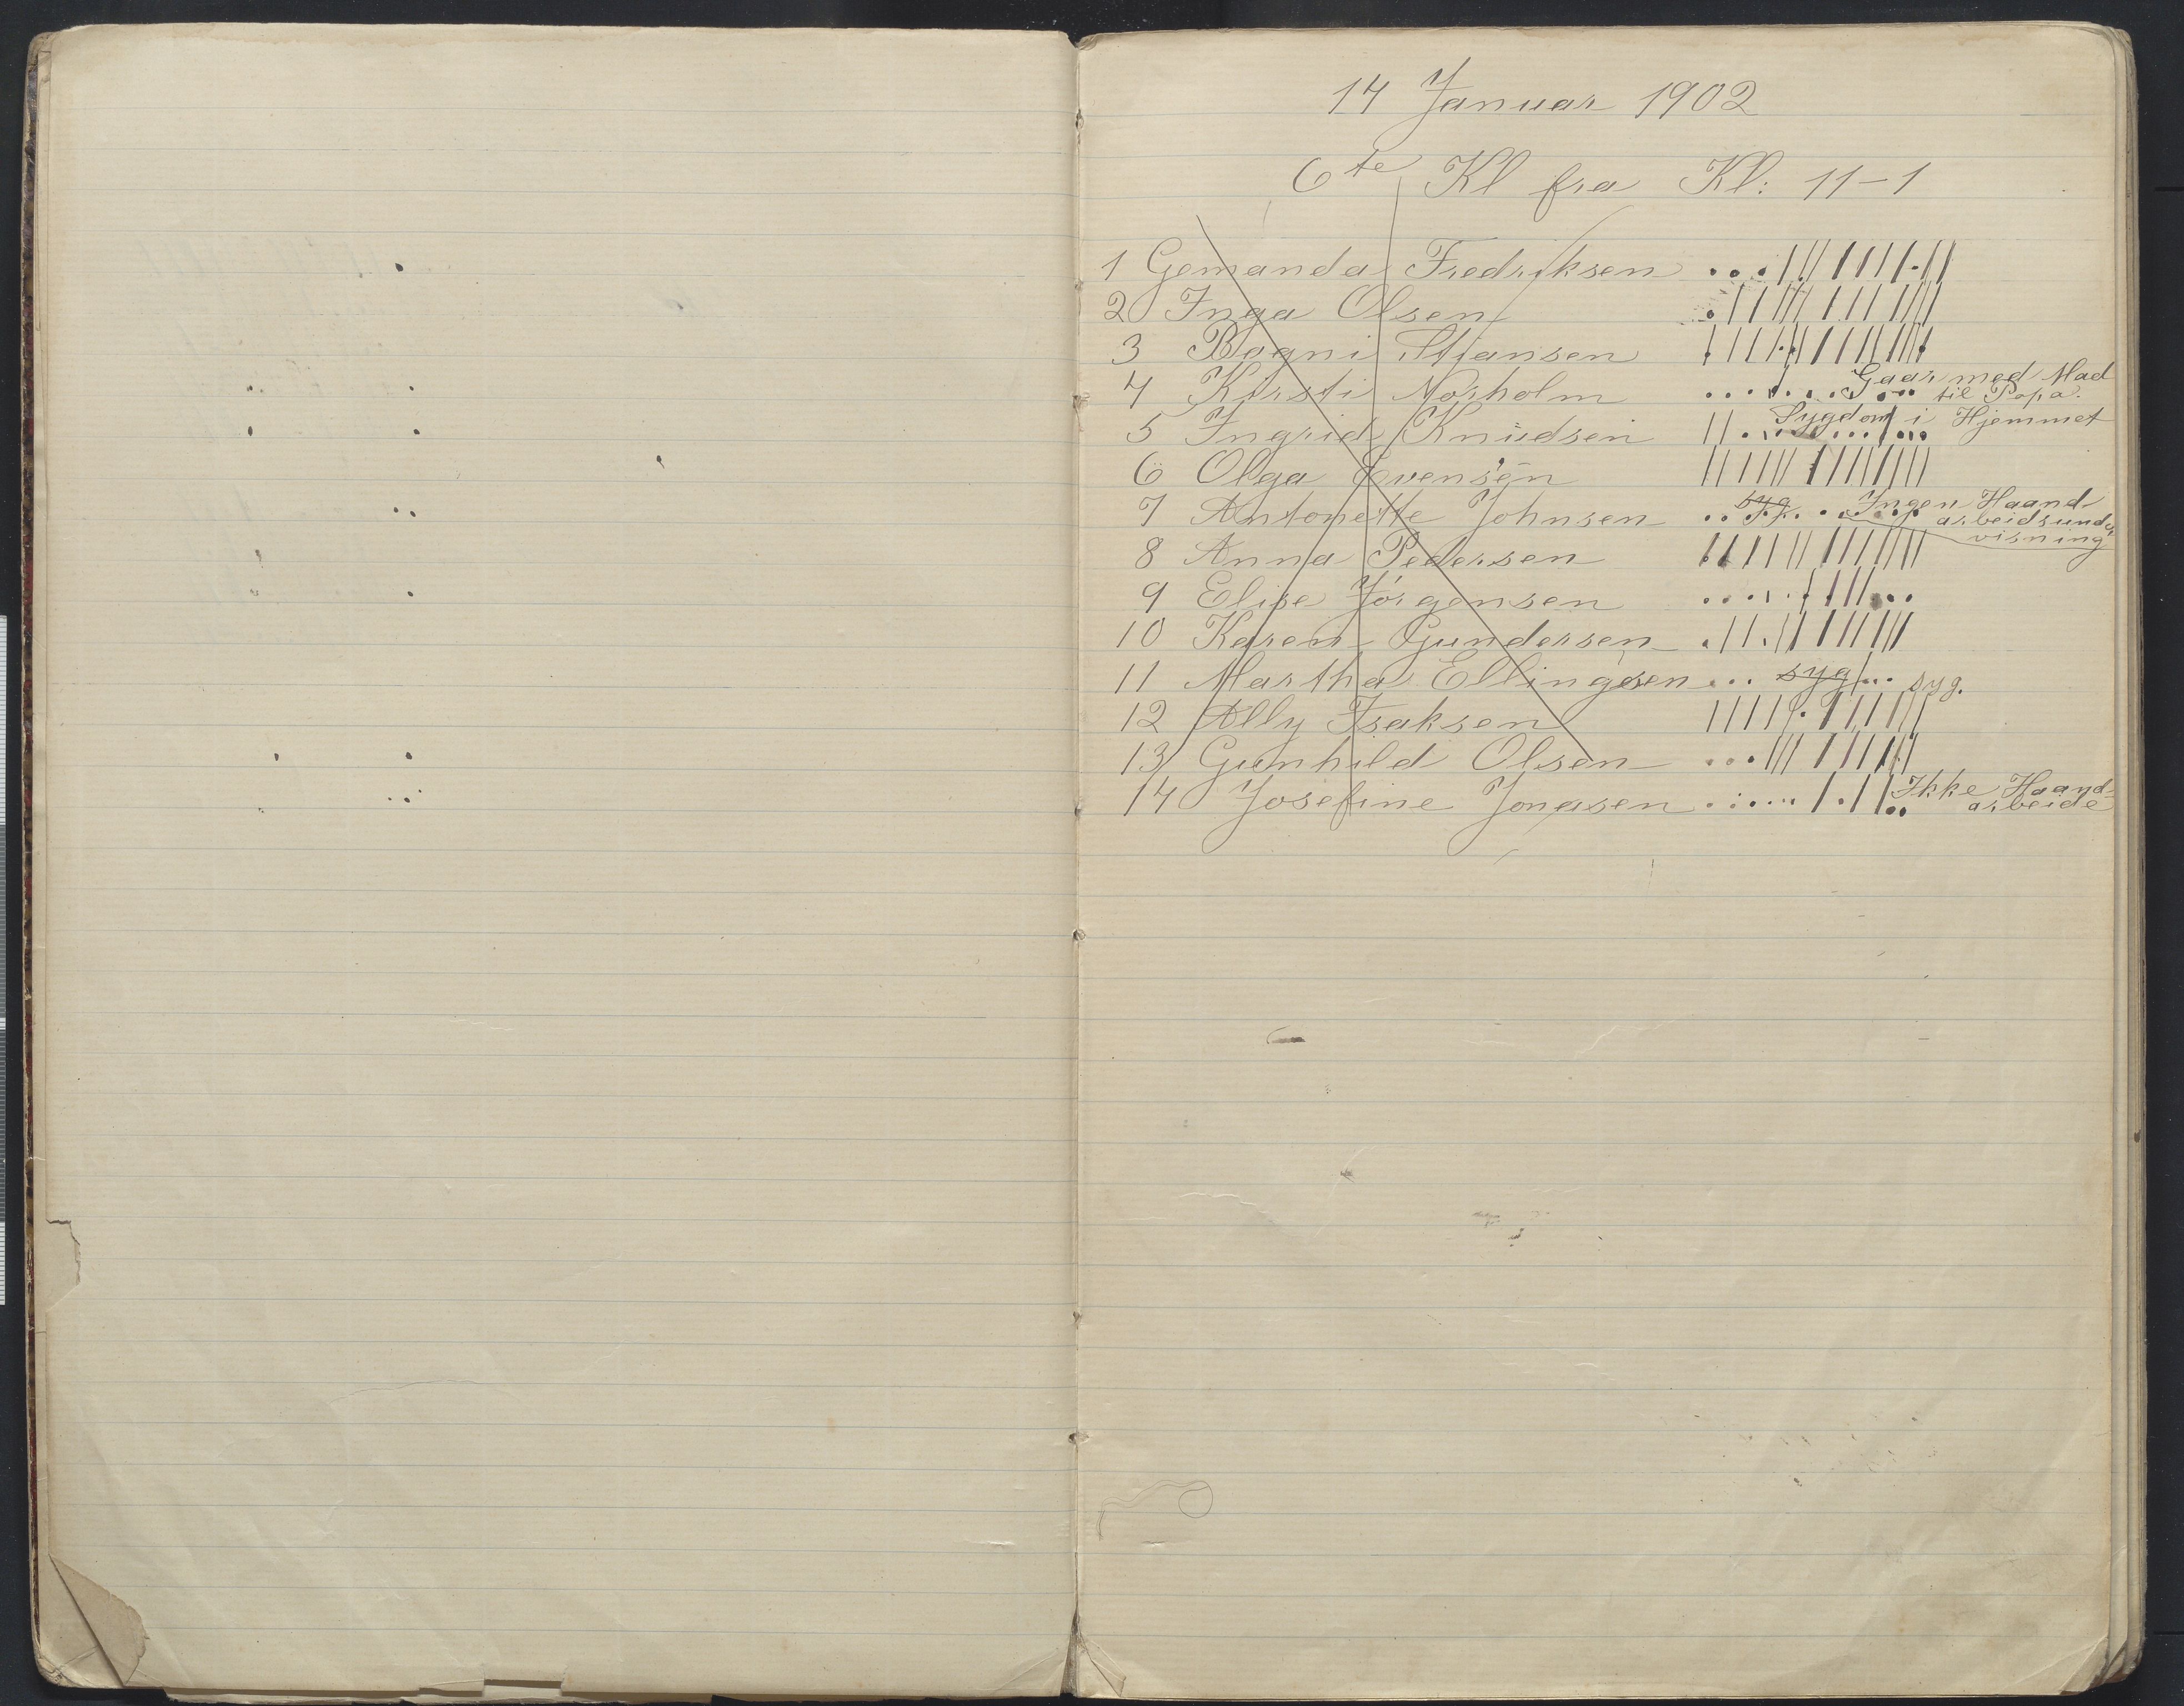 14 Januar 1902
6te Kl fra Kl: 11-1
1 Gemanda Fredriksen
2 Inga Olsen
3 Bagni Stjansen
4 Kirsti Norholm Gaar med Mad
til Papa.
5 Ingrid Knudsen Sygdom i Hjemmet
6 Olga Evensen
7 Antonette Johnsen syg Ingen Haand
arbeidsunder
visning
8 Anna Pedersen
9 Elise Jörgensen
10 Karen Gundersen
11 Martha Ellingsen syg syg.
12 Ally Isaksen
13 Gunhild Olsen
14 Josefine Jonasen Ikke Haand-
arbeide